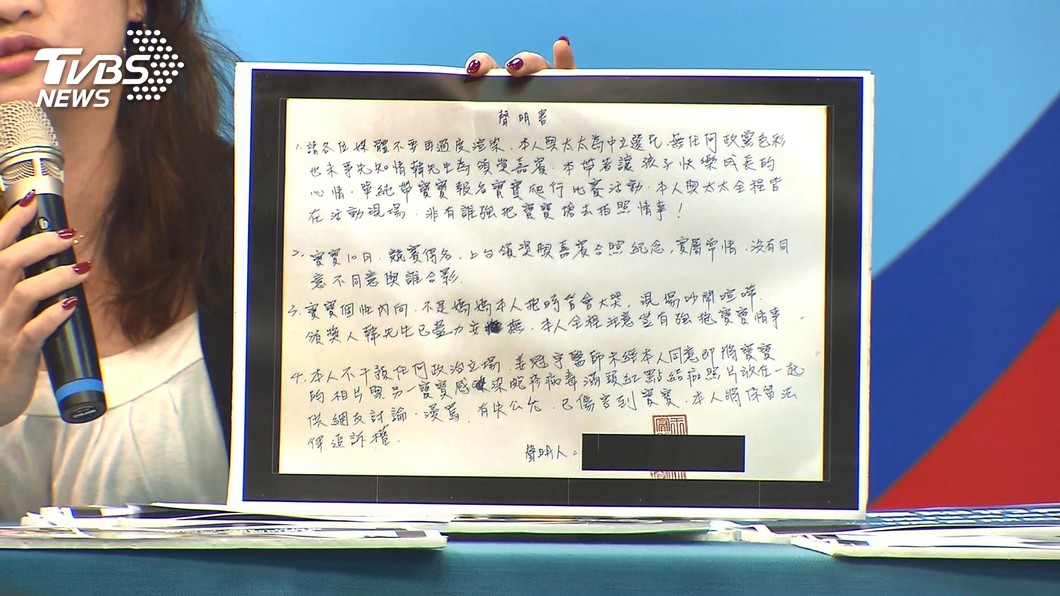 TVBS
NEWS
聲明書
1. 請各位媒體不要再過度渲染,本人與太太為中立選民,無任何政黨色彩
也未事先知情韓先生為頒獎嘉賓,本帶著讓孩子快樂成長的
心情,單純帶寶寶報名寶寶爬行比賽活動,本人與太太全程皆
在活動現場,非有誰強把寶寶搶去拍照情事!
2. 寶寶10日,競賽得名,上台領獎與嘉賓合照紀念,實屬常情,沒有同
意不同意與誰合影.
3. 寶寶個性內向,不是媽媽本人抱時皆會大哭,現場吵鬧喧嘩,
頒獎人韓先生已盡力安撫,本人全程注意豈有強抱寶寶情事.
4. 本人不干預任何政治立場,姜冠宇醫師未經本人同意即將寶寶
的相片與另一寶寶感染皰疹病毒滿頭紅點結痂照片放在一起
供網友討論、謾罵,有失公允,已傷害到寶寶,本人將保留法
律追訴權.
聲明人: